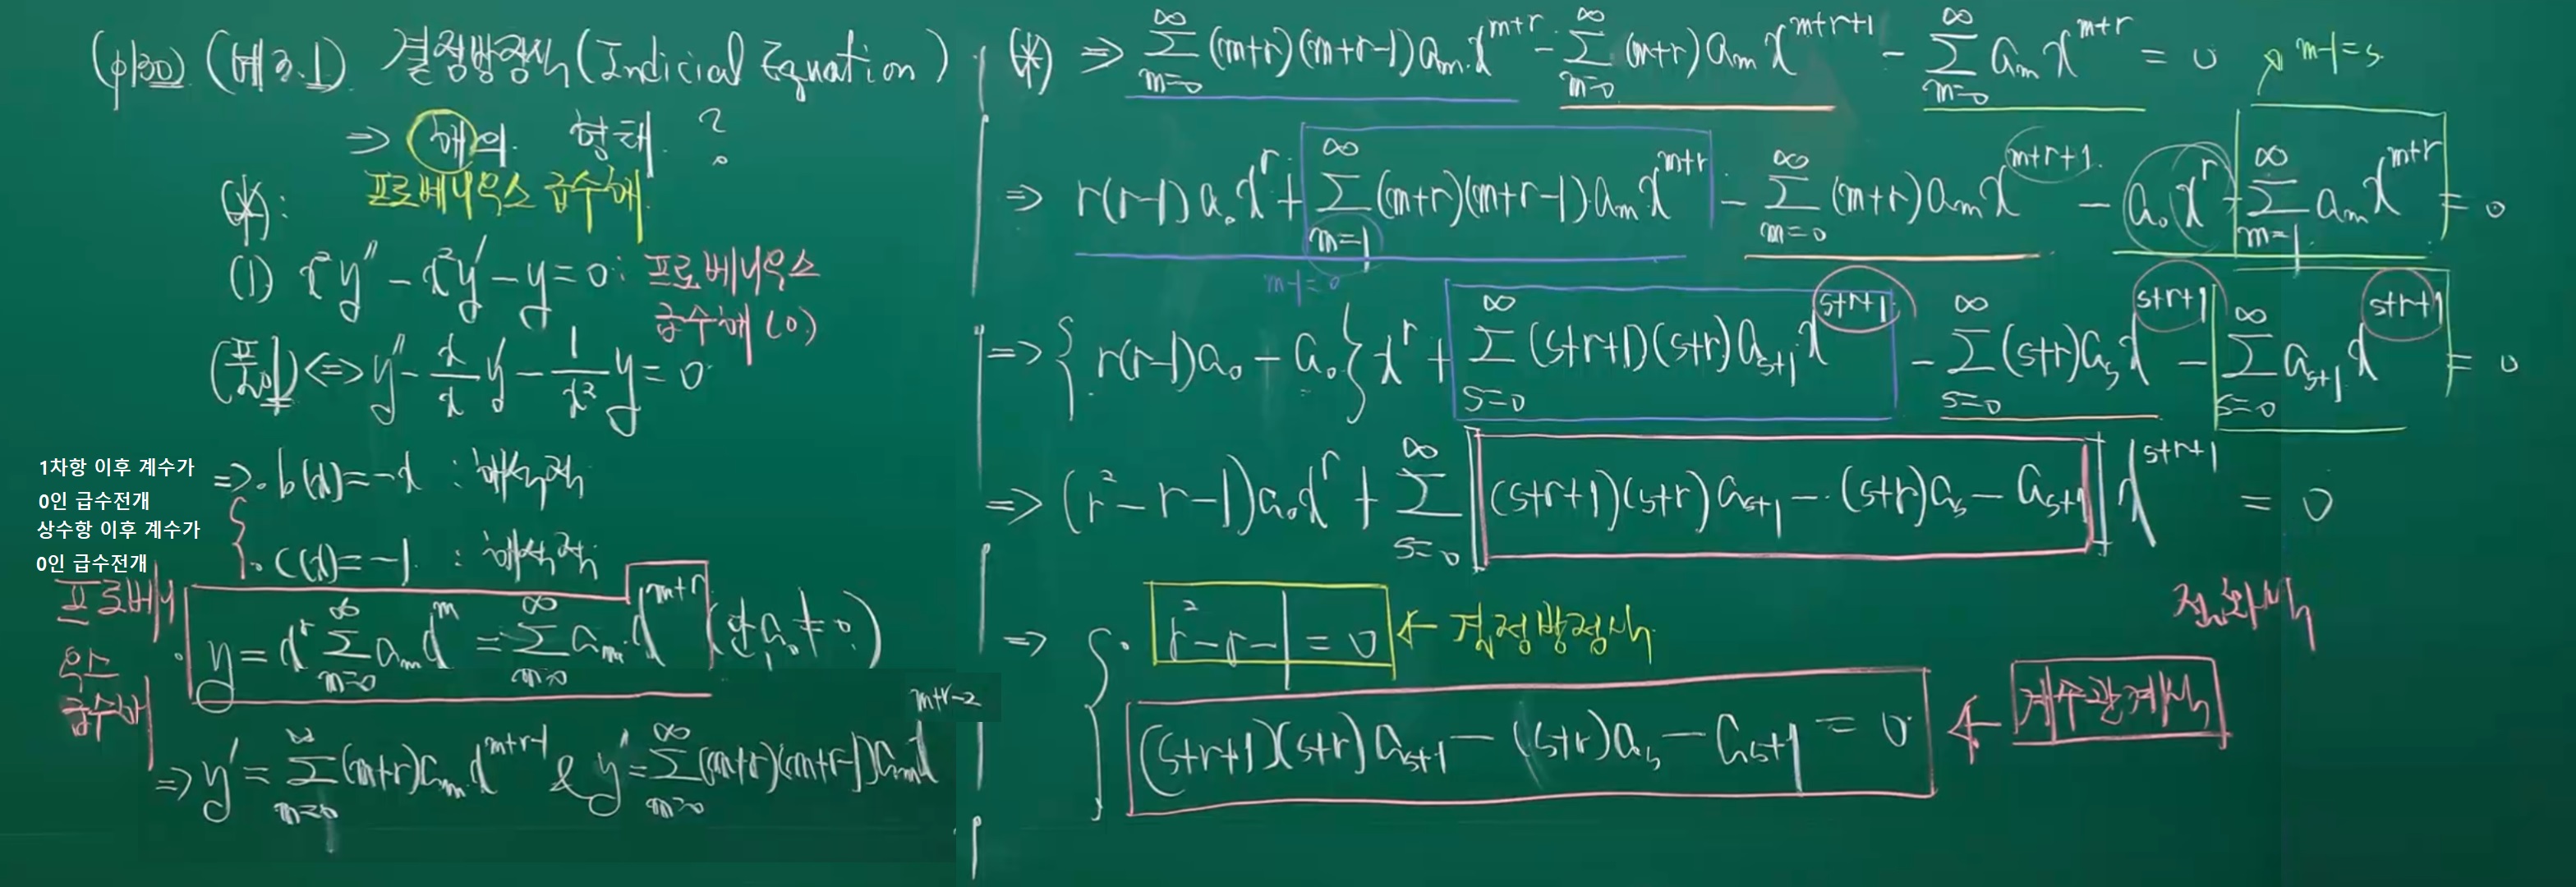 (p130) (예3.1) 결정방정식 (Indicial Equation)
⇒ 해의 형태?
프로베니우스 급수해.
(*):
(1) x²y'' - x²y' - y = 0 : 프로베니우스
급수해 (0)
(표준형) ⇔ y'' - x/x y' - 1/x² y = 0
1차항 이후 계수가
0인 급수전개
⇒ · b(x) = -x : 해석적
상수항 이후 계수가
0인 급수전개
· c(x) = -1 : 해석적
프로베니우스 급수해
· y = x^r ∑_{m=0}^∞ a_m x^m = ∑_{m=0}^∞ a_m x^{m+r} (단 a₀ ≠ 0)
⇒ y' = ∑_{m=0}^∞ (m+r)a_m x^{m+r-1} & y'' = ∑_{m=0}^∞ (m+r)(m+r-1)a_m x^{m+r-2}
(*) ⇒ ∑_{m=0}^∞ (m+r)(m+r-1)a_m x^{m+r} - ∑_{m=0}^∞ (m+r)a_m x^{m+r+1} - ∑_{m=0}^∞ a_m x^{m+r} = 0
m-1=s
⇒ r(r-1)a₀x^r + ∑_{m=1}^∞ (m+r)(m+r-1)a_m x^{m+r} - ∑_{m=0}^∞ (m+r)a_m x^{m+r+1} - a₀x^r - ∑_{m=1}^∞ a_m x^{m+r} = 0
m-1=0
⇒ {r(r-1)a₀ - a₀}x^r + ∑_{s=0}^∞ (s+r+1)(s+r)a_{s+1} x^{s+r+1} - ∑_{s=0}^∞ (s+r)a_s x^{s+r+1} - ∑_{s=0}^∞ a_{s+1} x^{s+r+1} = 0
⇒ (r²-r-1)a₀x^r + ∑_{s=0}^∞ [(s+r+1)(s+r)a_{s+1} - (s+r)a_s - a_{s+1}] x^{s+r+1} = 0
⇒ { · r²-r-1 = 0 ← 결정방정식
점화식
(s+r+1)(s+r)a_{s+1} - (s+r)a_s - a_{s+1} = 0 ← 계수관계식